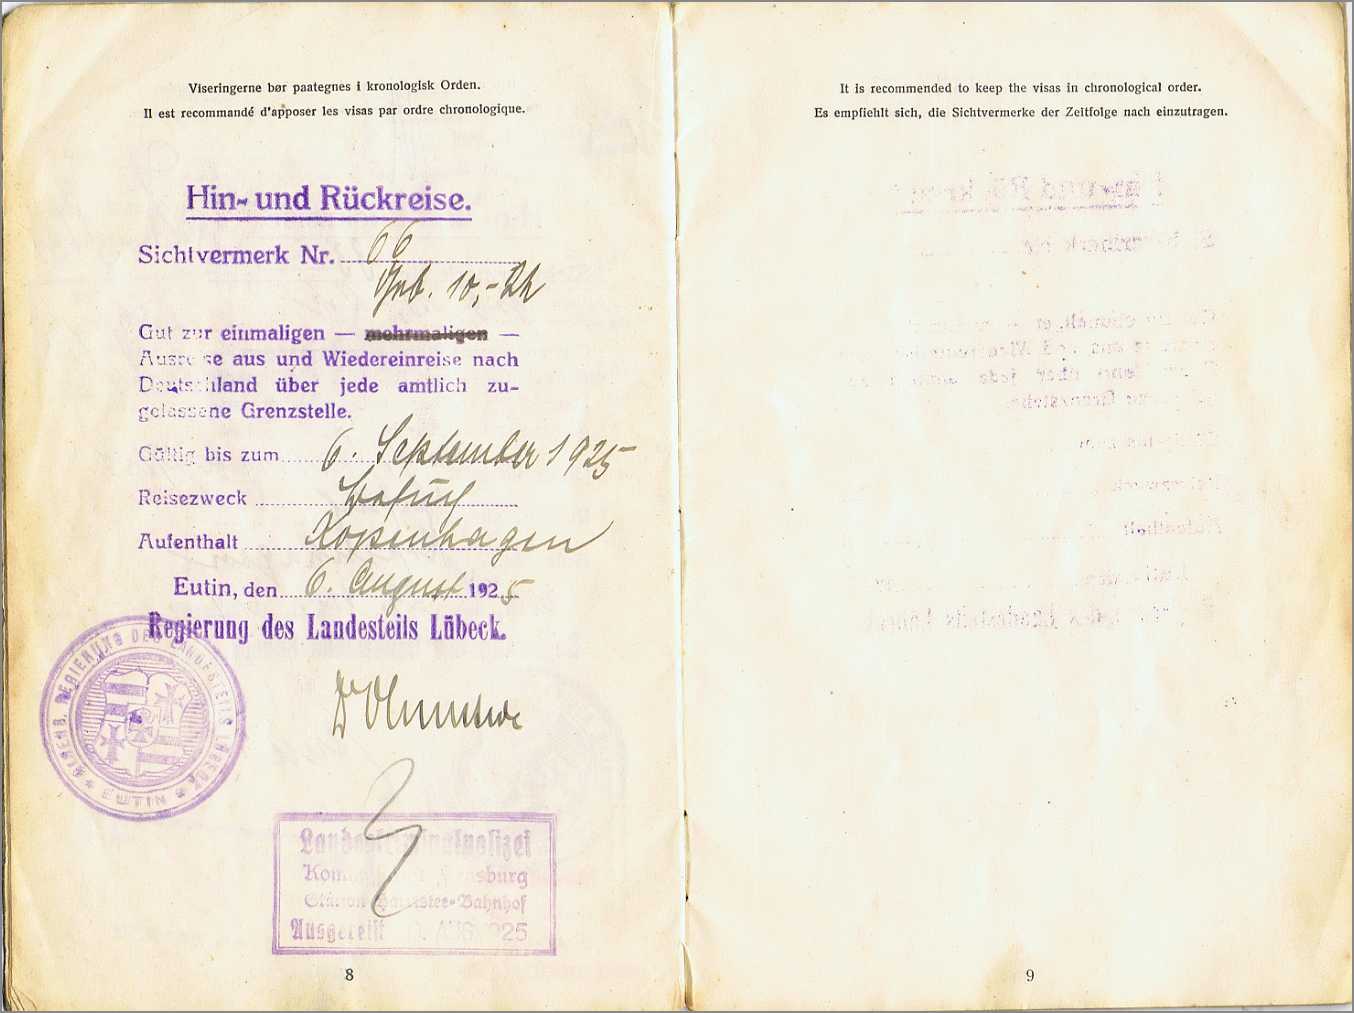 Viseringerne bør paategnes i kronologisk Orden.
Il est recommandé d'apposer les visas par ordre chronologique.
Hin- und Rückreise.
Sichtvermerk Nr. 66
Geb. 10,-
Gut zur einmaligen — mehrmaligen —
Ausreise aus und Wiedereinreise nach
Deutschland über jede amtlich zu-
gelassene Grenzstelle.
Gültig bis zum 6. September 1925
Reisezweck Besuch
Aufenthalt Kopenhagen
Eutin, den 6. August 1925
Regierung des Landesteils Lübeck.
REGIERUNG DES LANDESTEILS LÜBECK
* EUTIN *
Landeskriminalpolizei
Station Harrislee-Bahnhof
Ausgereist AUG 1925
8
It is recommended to keep the visas in chronological order.
Es empfiehlt sich, die Sichtvermerke der Zeitfolge nach einzutragen.
9